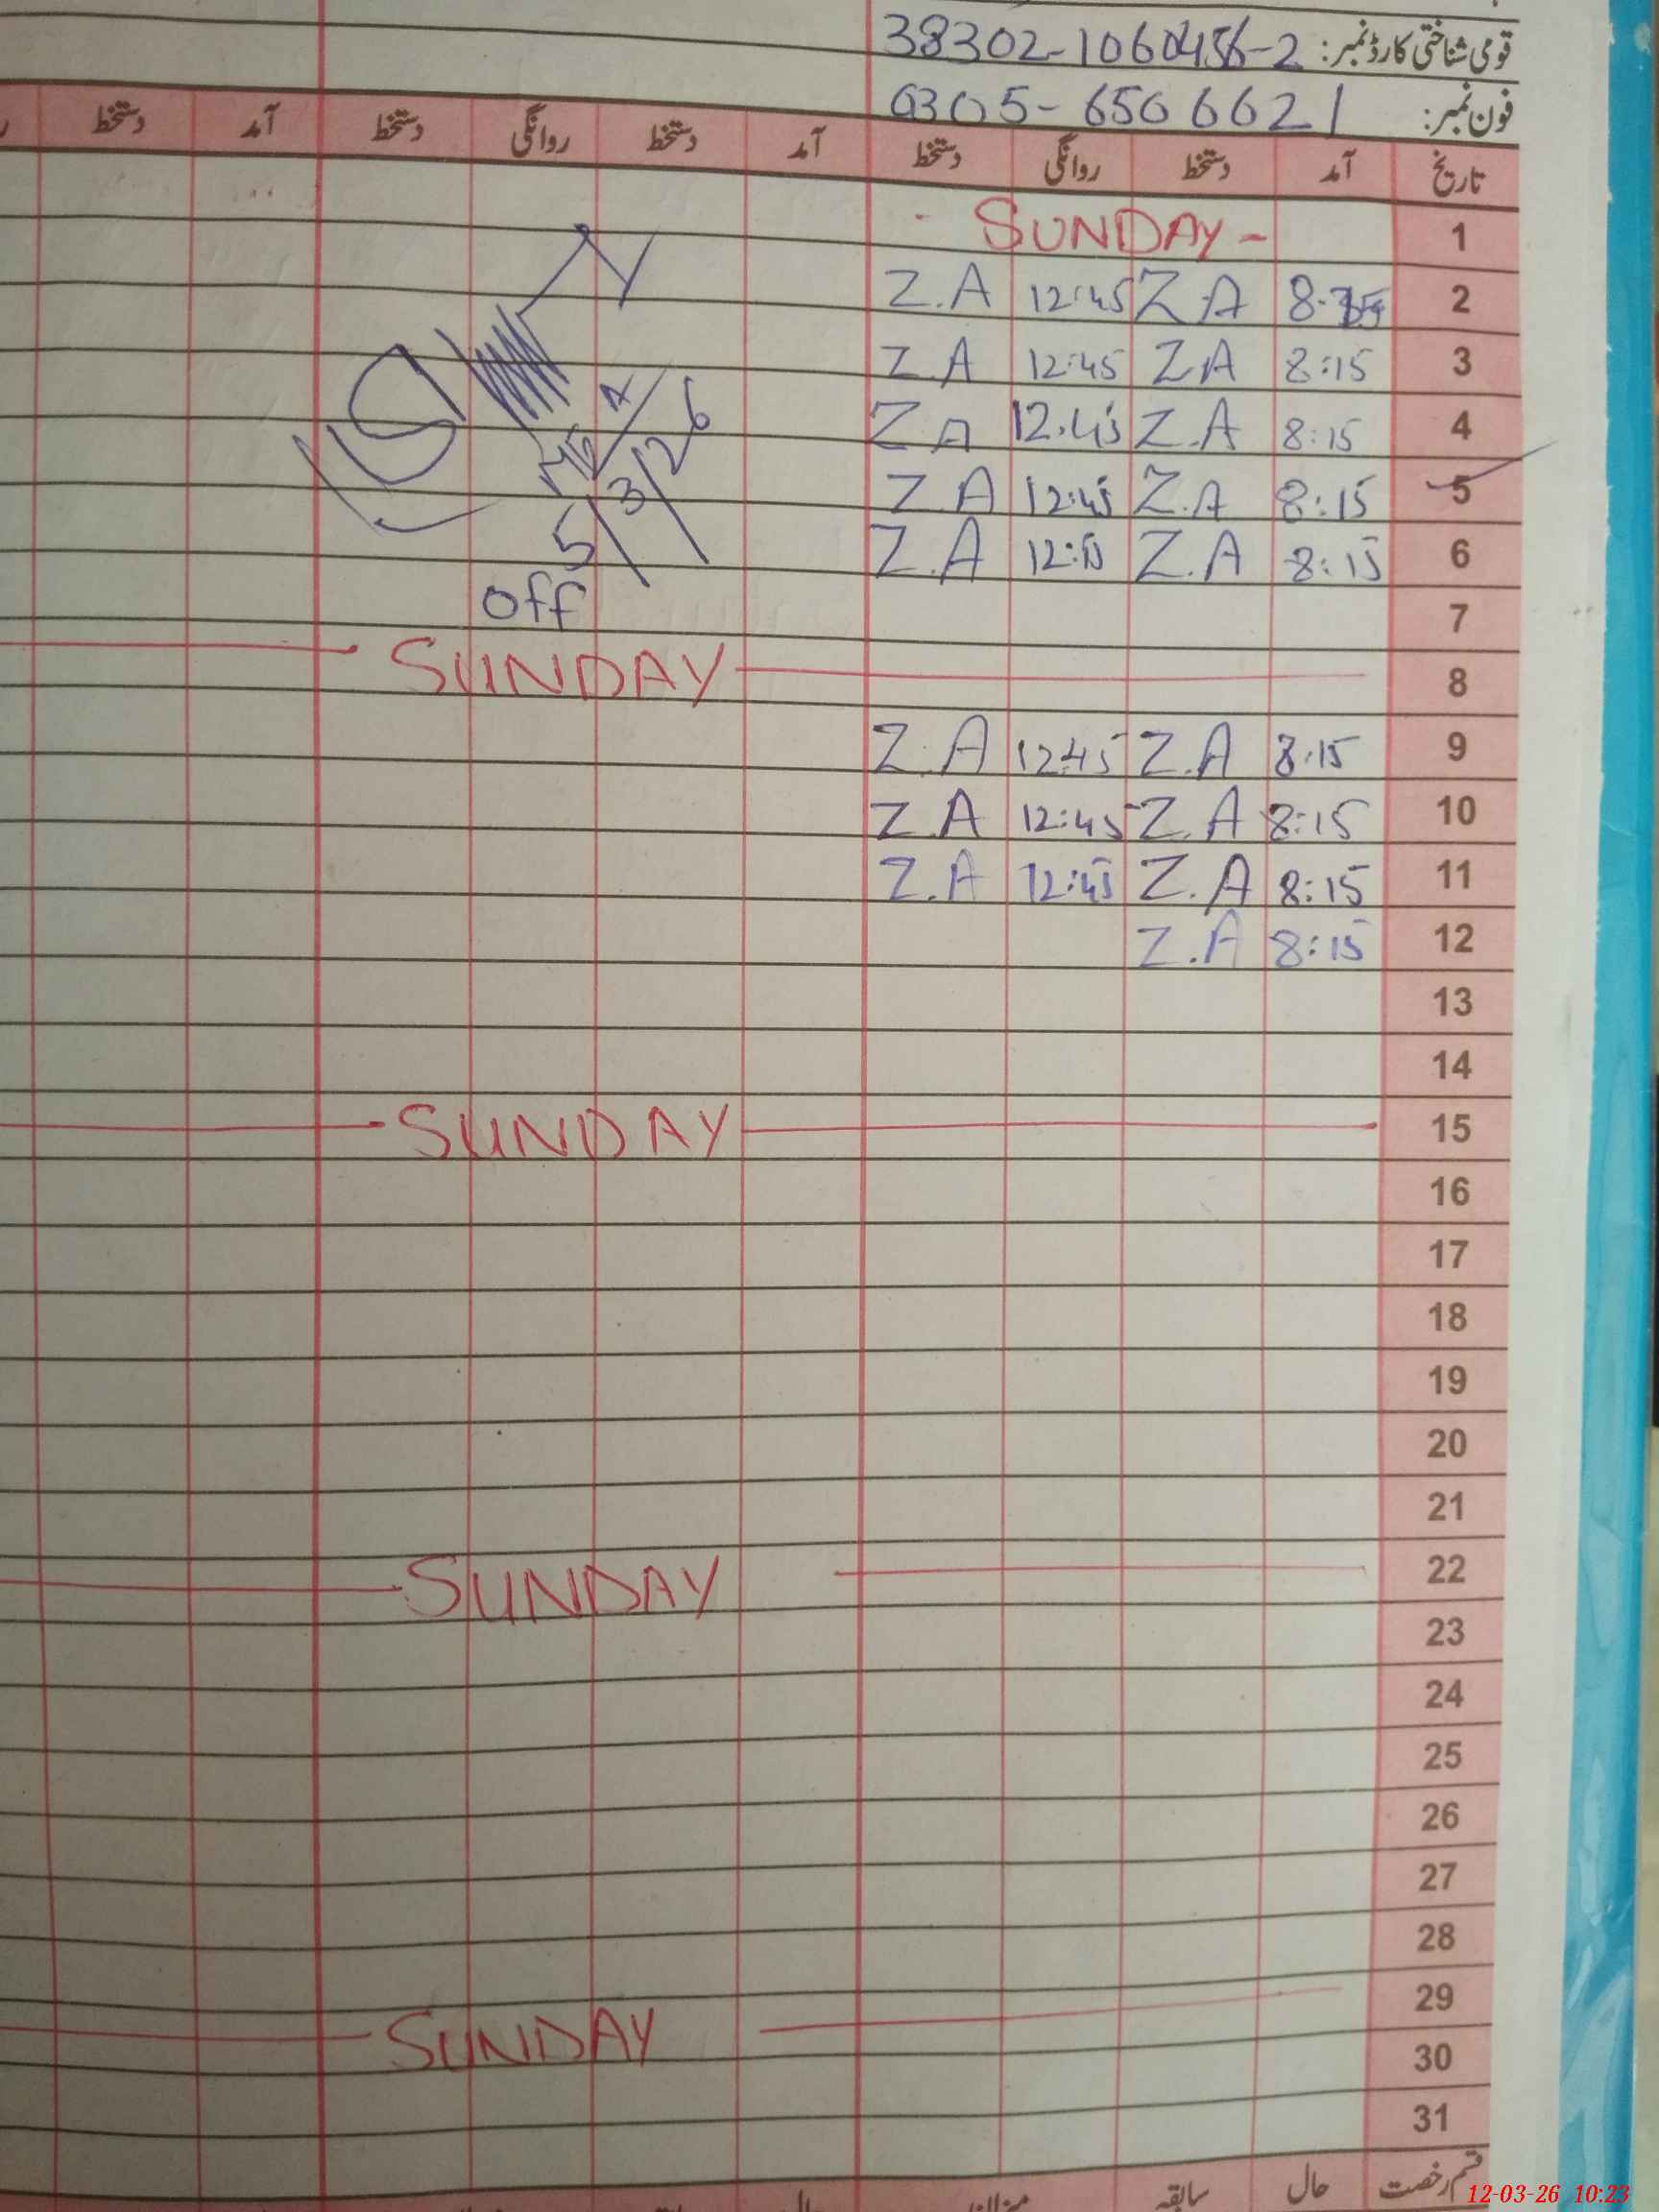 قومی شناختی کارڈ نمبر: 38302-1060456-2
فون نمبر: 0305-6506621
تاریخ آمد دستخط روانگی دستخط آمد دستخط روانگی دستخط آمد دستخط
1 - SUNDAY -
2 Z.A 12:45 Z.A
3 8:15 Z.A 12:45 Z.A
4 8:15 Z.A 12.45 Z A
5 8:15 Z.A 12:45 Z.A
6 8:15 Z.A Z.A
5/3/26
7 off
8 SUNDAY
9 8:15 Z.A 1245 Z.A
10 8:15 Z.A 12:45 Z.A
11 8:15 Z.A 12:45 Z.A
12 8:15 Z.A
13
14
15 SUNDAY
16
17
18
19
20
21
22 SUNDAY
23
24
25
26
27
28
29 SUNDAY
30
31
قسم رخصت حال سابقہ
12-03-26 10:23